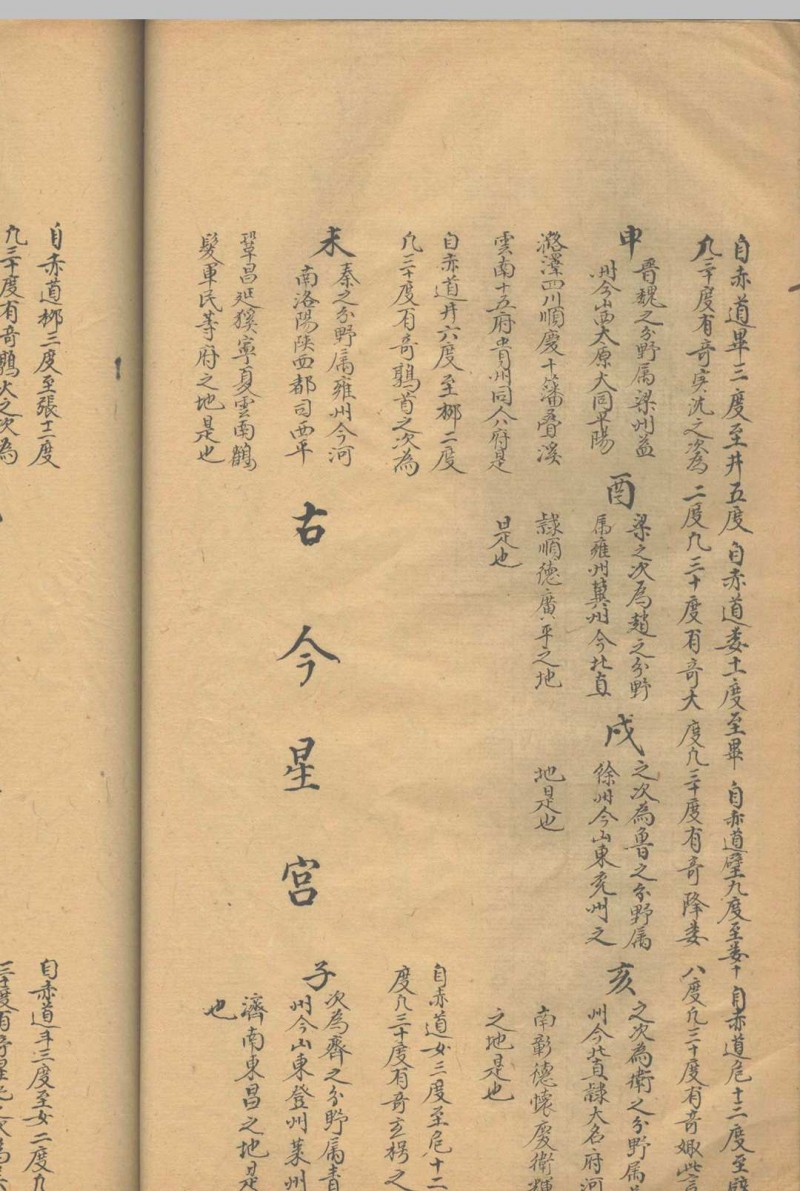 自赤道畢三度至井五度
凡三十度有奇実沈之次為
申
晋魏之分野属梁州益
州今山西太原大同平陽
潞澤四川順慶十藩叠溪
雲南十五府貴州同八府是
自赤道婁十一度至畢
二度凡三十度有奇大
酉
梁之次為趙之分野
属雍州冀州今北直
隸順德廣平之地
是也
自赤道壁九度至婁十
度凡三十度有奇降婁
戌
之次為魯之分野属
徐州今山東兗州之
地是也
自赤道危十三度至壁
八度凡三十度有奇娵訾
亥
之次為衛之分野属
州今北直隸大名府河
南彰德懷慶衛輝
之地是也
自赤道井六度至柳二度
凡三十度有奇鶉首之次為
未
秦之分野属雍州今河
南洛陽陝西都司西平
鞏昌延綏寧夏雲南鶴
髮軍民等府之地是也
古今星宮
自赤道女三度至危十二
度凡三十度有奇玄枵之
子
次為齊之分野属青
州今山東登州萊州
濟南東昌之地是
也
自赤道柳三度至張十一度
凡三十度有奇鶉火之次為
自赤道斗三度至女二度凡
三十度有奇星紀之次為